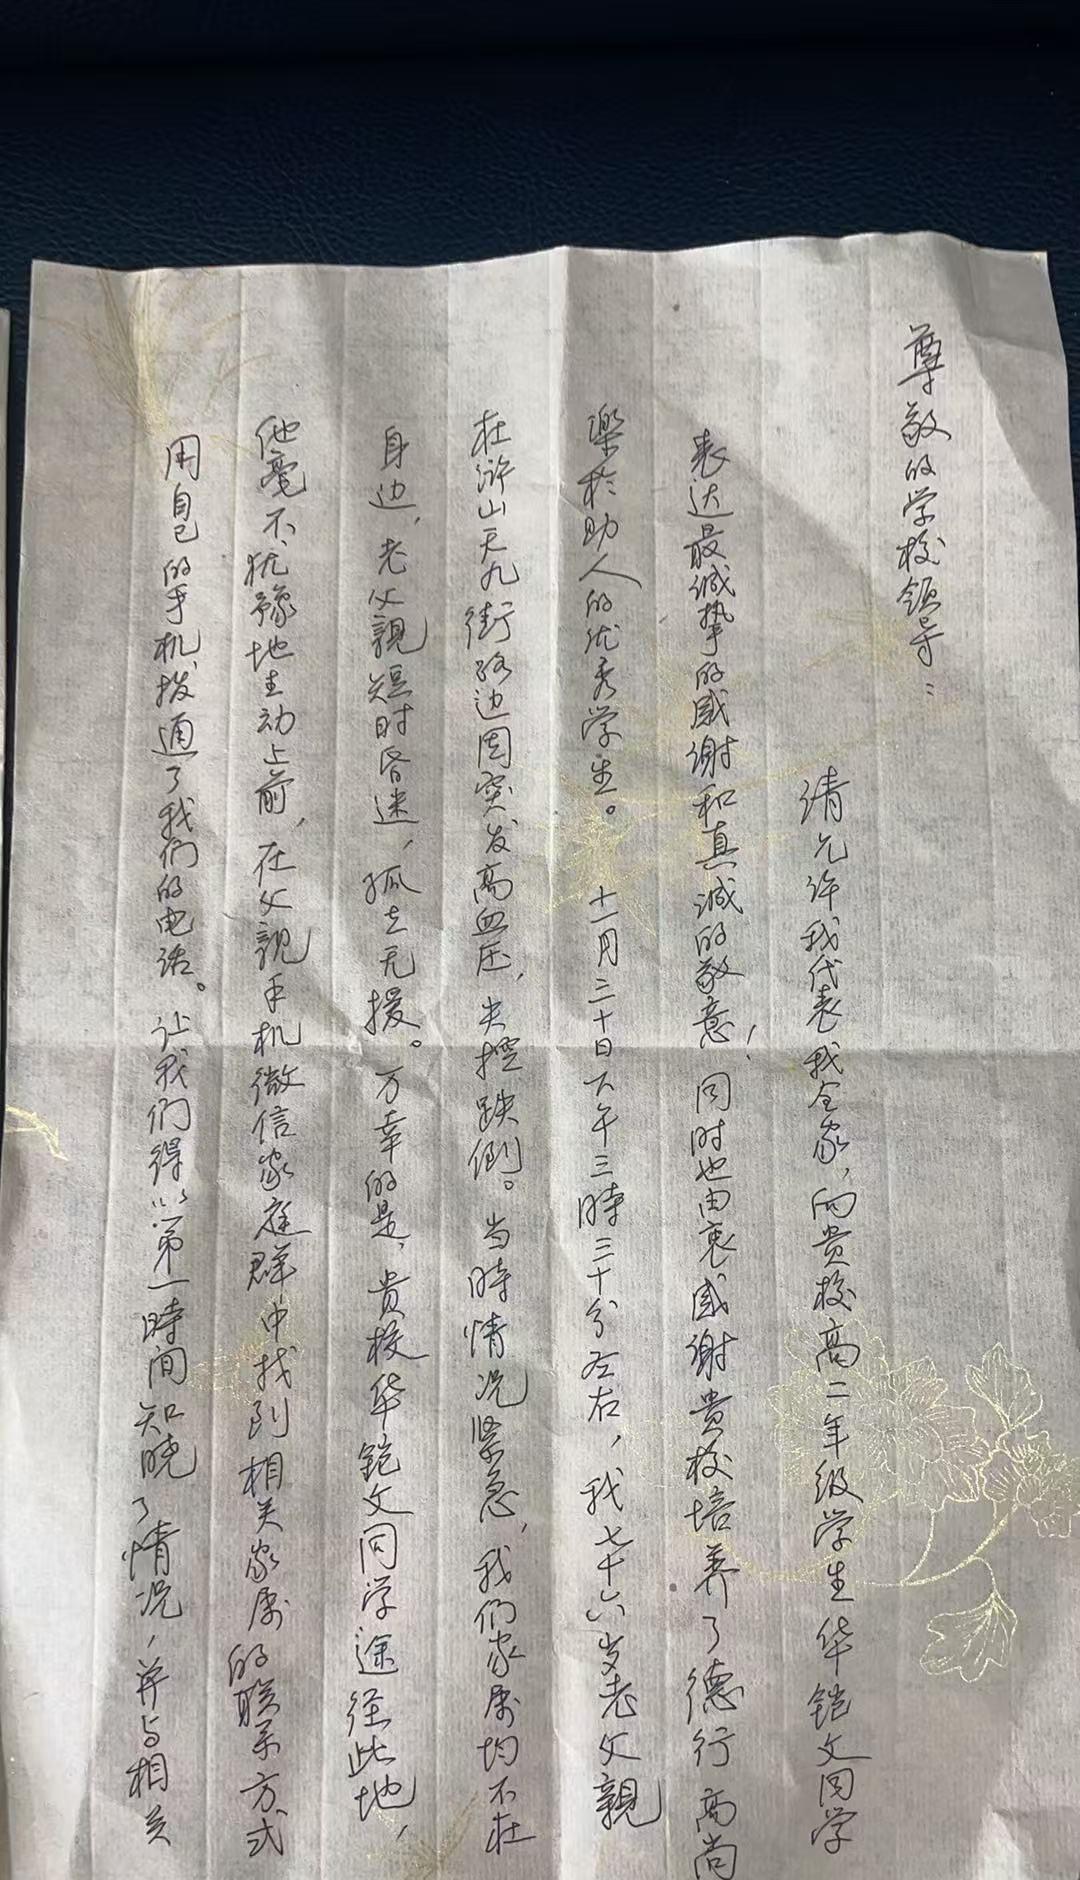 尊敬的学校领导：
请允许我代表我全家，向贵校高二年级学生华铠文同学
表达最诚挚的感谢和真诚的敬意！同时也由衷感谢贵校培养了德行高尚
樂於助人的优秀学生。 十一月三十日下午三時三十分左右，我七十六岁老父親
在浒山天九街路边因突发高血压，失控跌倒。当時情况紧急，我们家属均不在
身边，老父親短时昏迷，孤立无援。万幸的是，貴校华铠文同学途径此地，
他毫不犹豫地主动上前，在父親手机微信家庭群中找到相关家属的联系方式
用自己的手机拨通了我们的电话。让我们得以第一時间知晓了情况，并与相关